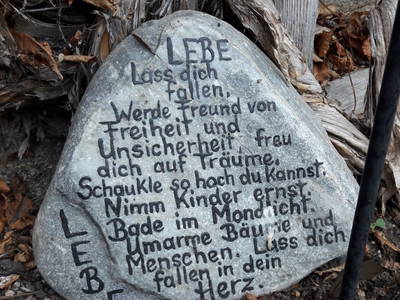 LEBE
Lass dich
fallen,
Werde Freund von
Freiheit und
Unsicherheit, freu
dich auf Träume,
Schaukle so hoch du kannst.
Nimm Kinder ernst.
Bade im Mondlicht
Umarme Bäume und
Menschen. Lass dich
fallen in dein
Herz.
L
E
B
E